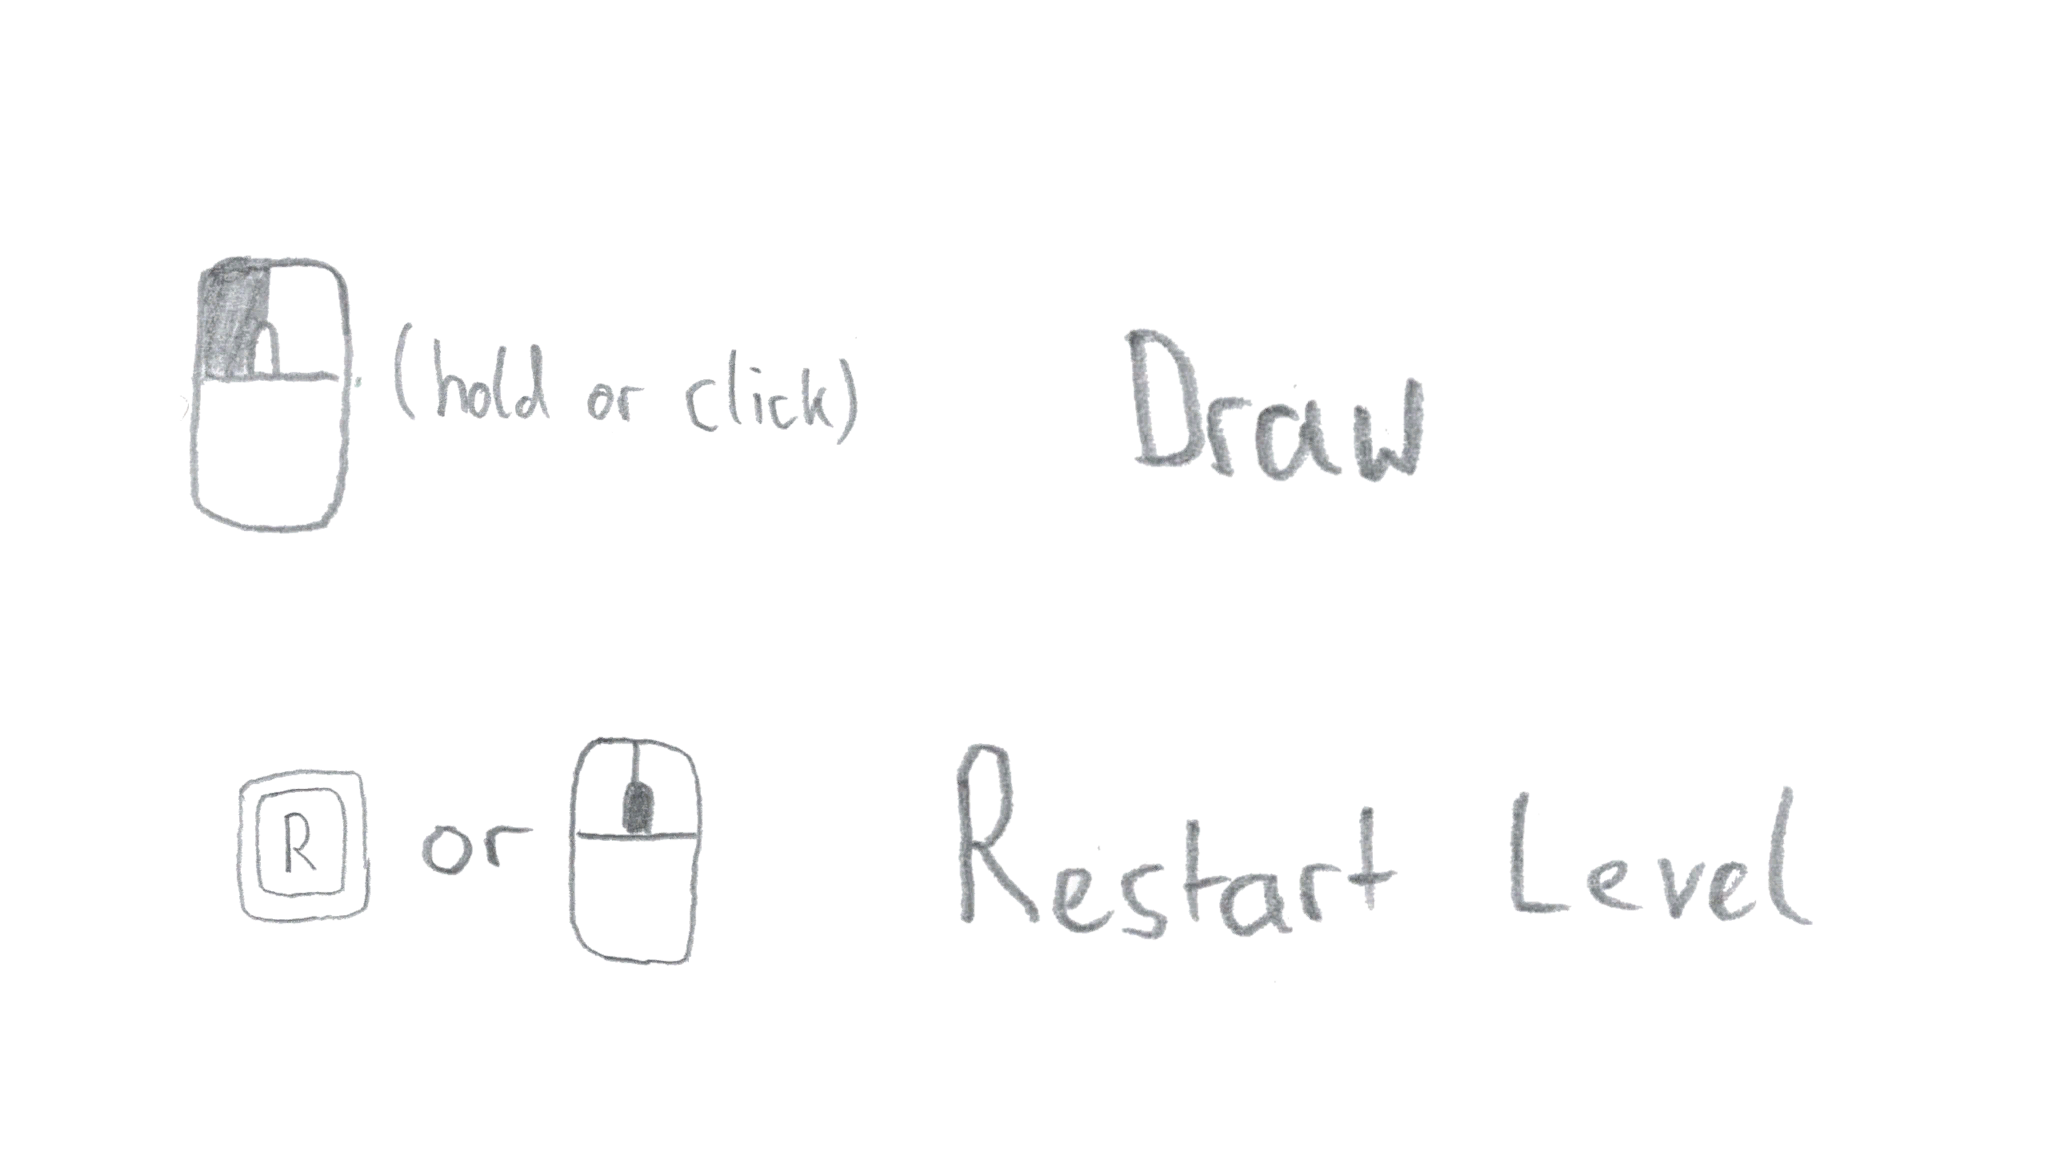 (hold or click) Draw
R or Restart Level